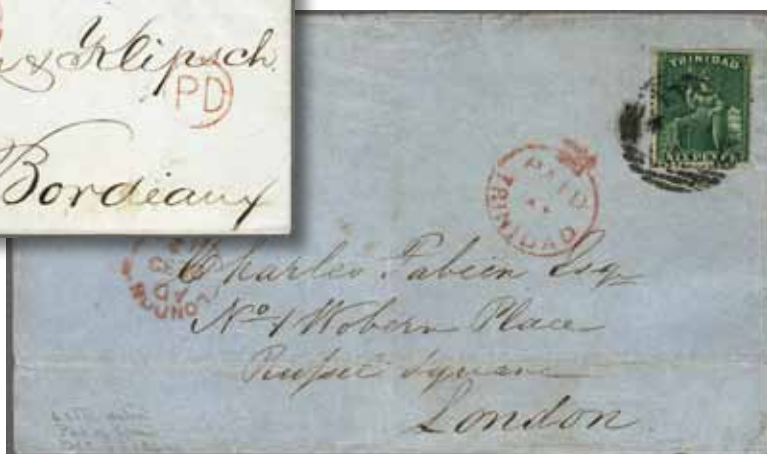 & Klipsch
PD
Bordeaux
TRINIDAD
SIX PENCE
PAID
TRINIDAD
Charles Fabien Esq
No 4 Woburn Place
Russel Square
London
LONDON